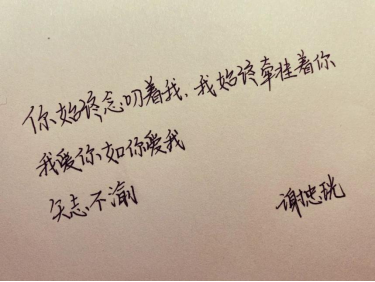 你始终念叨着我，我始终牵挂着你
我爱你如你爱我
矢志不渝
谢忠珖